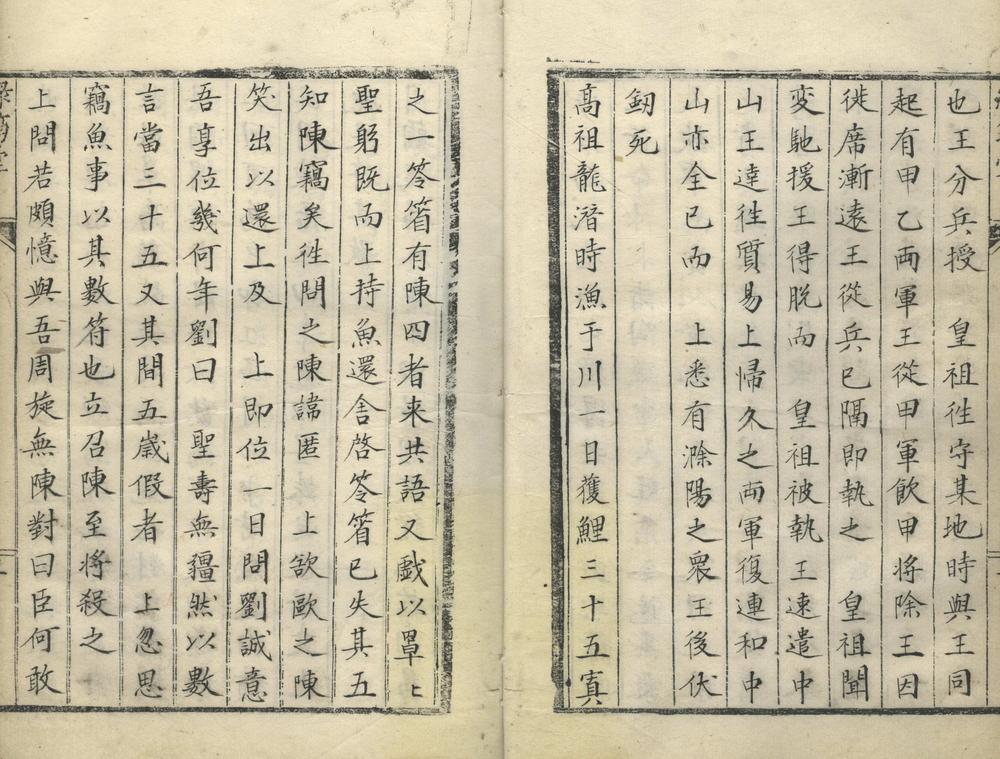 也王分兵授　皇祖徃守某地時與王同
起有甲乙両軍王從甲軍飲甲将除王因
徙席漸遠王從兵已隔即執之　皇祖聞
変馳援王得脱而　皇祖被執　王速遣中
山王達徃質易上帰久之両軍復連和中
山亦全已而　上悉有滁陽之衆王後伏
劒死
髙祖龍濳時漁于川一日獲鯉三十五寘
之一笭箵有陳四者来共語又戱以罩上
聖躬既而上持魚還舎啓笭箵已失其五
知陳竊矣徃問之陳諱匿　上欲歐之陳
笑出以還上及　上即位一日問劉誠意
吾享位幾何年劉曰　聖壽無疆然以數
言當三十五又其間五歳假者　上忽思
竊魚事以其數符也立召陳至将殺之
上問若頗憶與吾周旋無陳對曰臣何敢